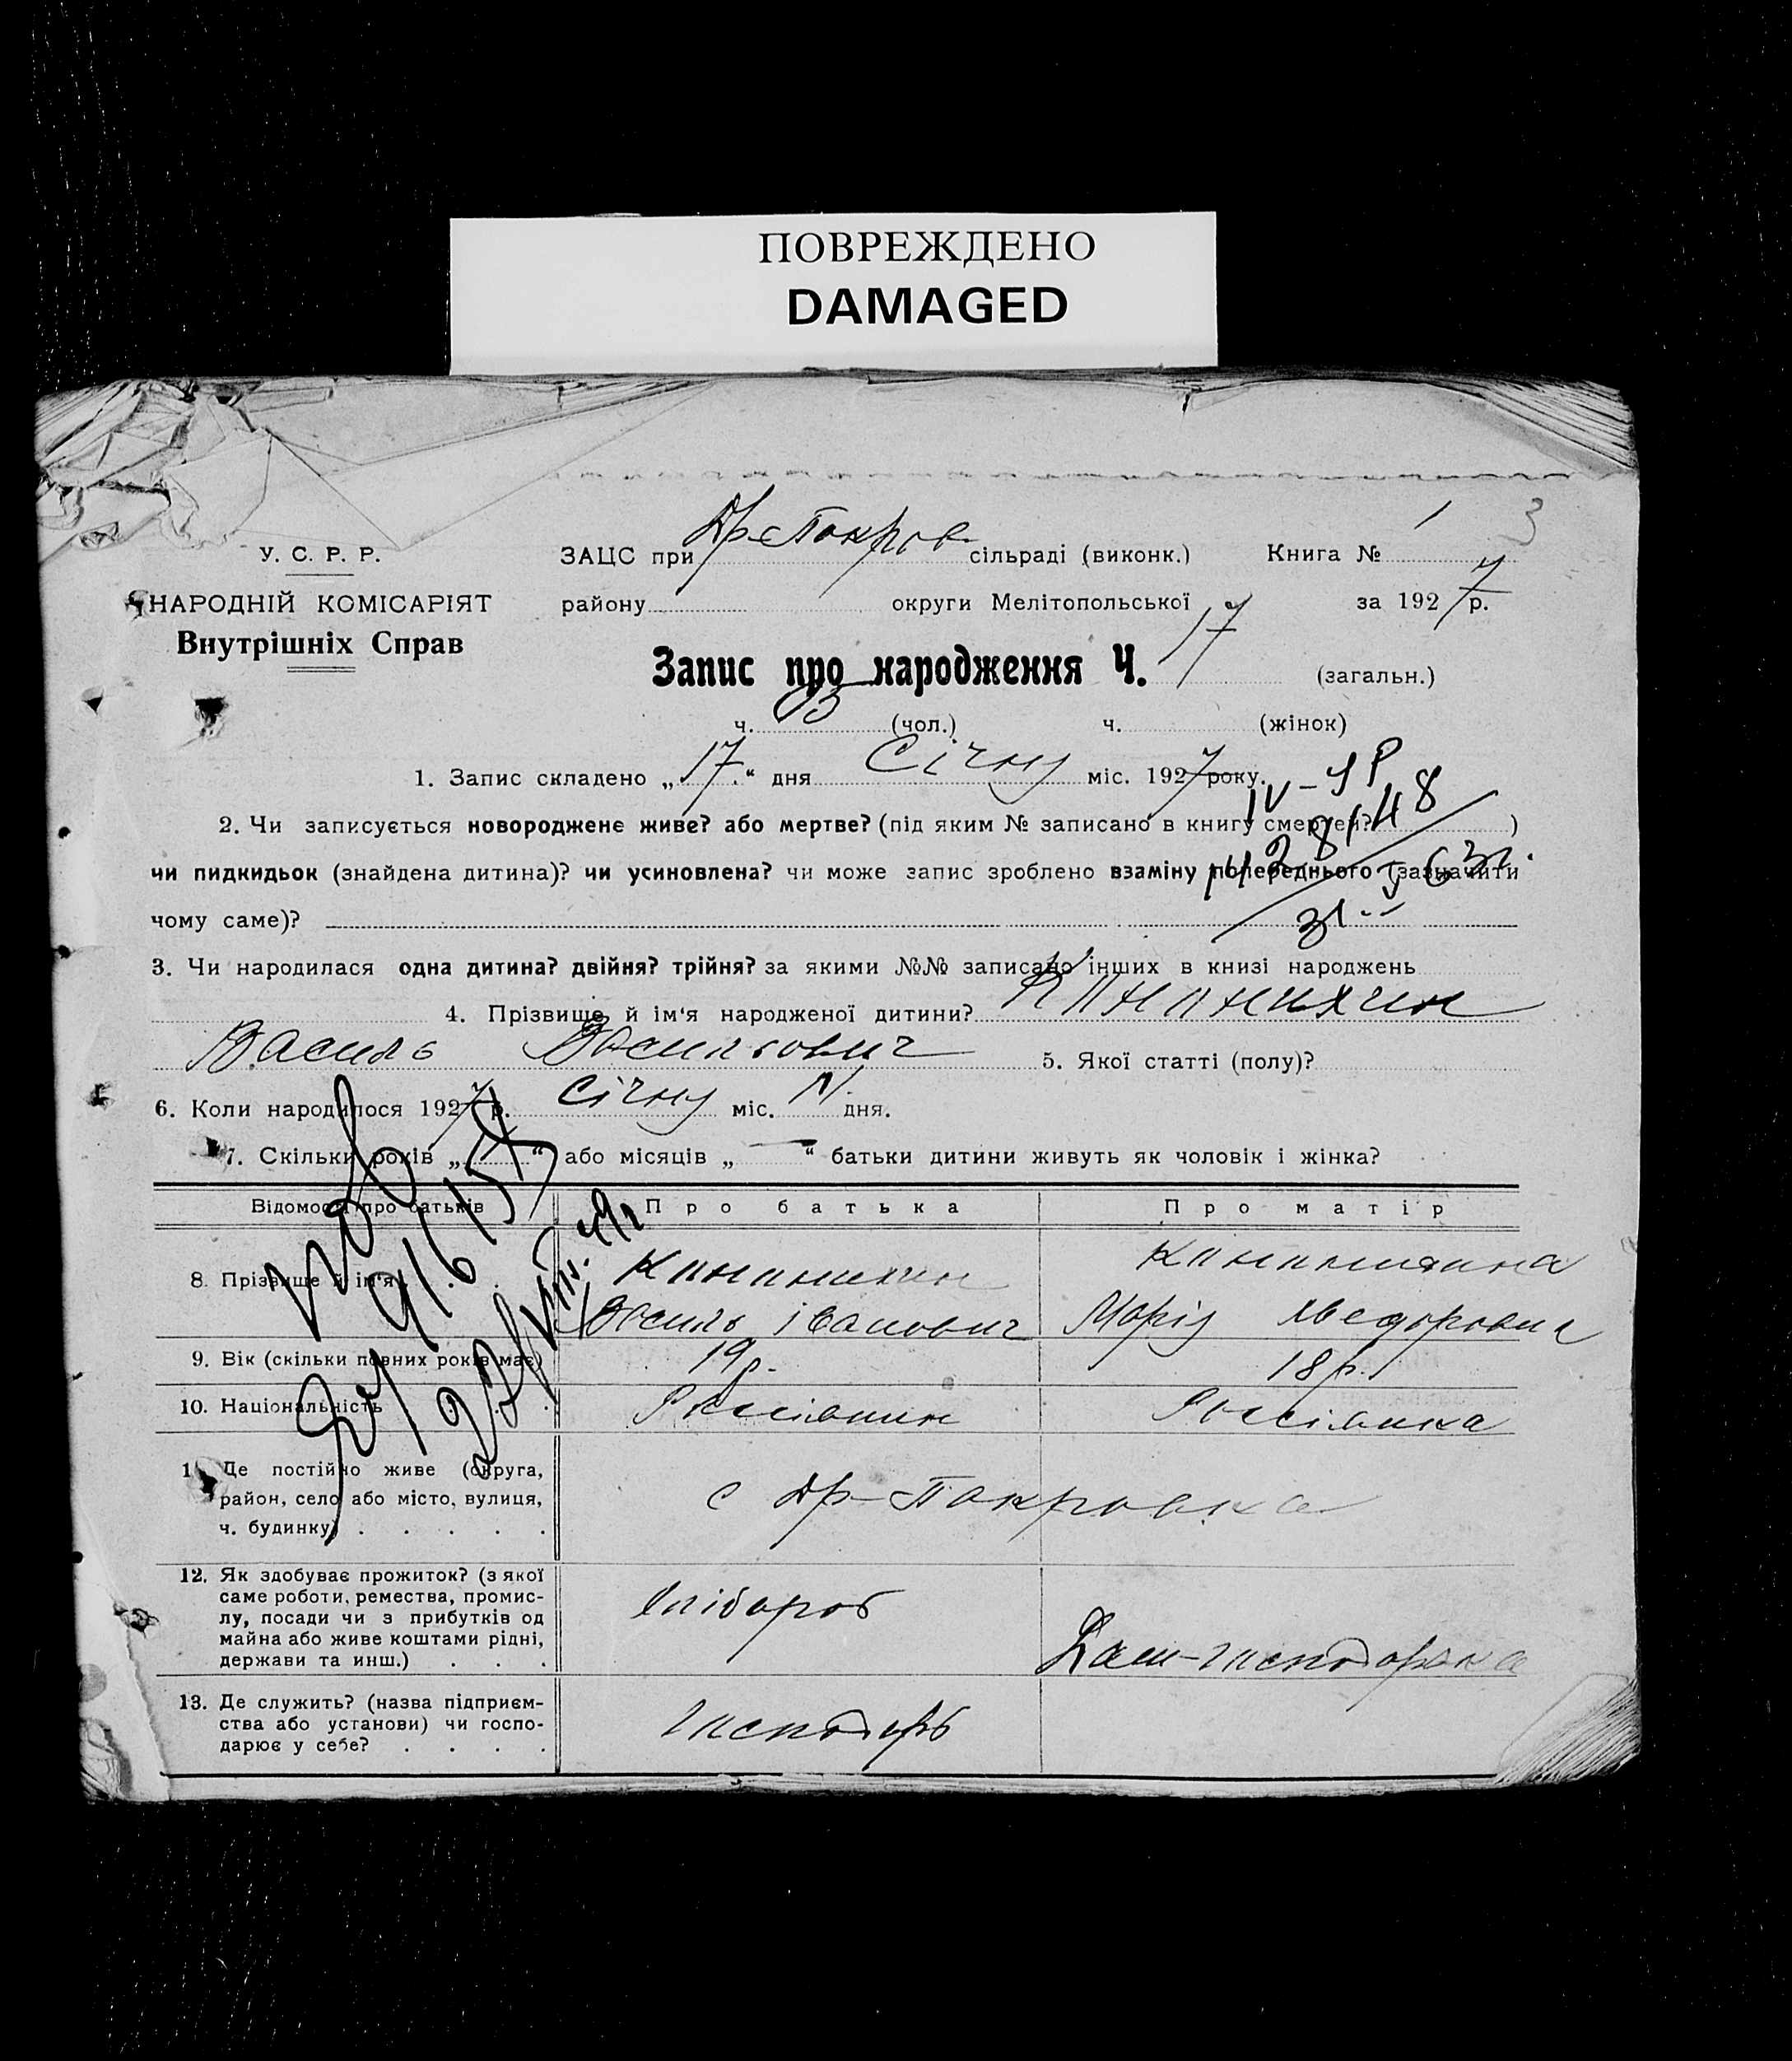 ПОВРЕЖДЕНО
DAMAGED
3
У. С. Р. Р.
НАРОДНІЙ КОМІСАРІЯТ
Внутрішніх Справ
ЗАЦС при Др-Покров сільраді (виконк.) Книга № 1
району округи Мелітопольської за 1927 р.
Запис про народження Ч. 17 (загальн.)
ч. (чол.) ч. (жінок)
1. Запис складено „17.“ дня Січну міс. 1927 року.
2. Чи записується новороджене живе? або мертве? (під яким № записано в книгу смертей? )
чи пидкидьок (знайдена дитина)? чи усиновлена? чи може запис зроблено взаміну попереднього (зазначити
чому саме)?
3. Чи народилася одна дитина? двійня? трійня? за якими №№ записано інших в книзі народжень
4. Прізвище й ім‘я народженої дитини?
Василь Васильович 5. Якої статті (полу)?
6. Коли народилося 1927 р. Січну міс. дня.
7. Скільки років „ “ або місяців „—“ батьки дитини живуть як чоловік і жінка?
Відомості про батьків Про батька Про матір
8. Прізвище й ім‘я .
Василь Іванович Марія
9. Вік (скільки повних років має) 19 р. 18 р.
10. Національність Россіянин Россіянка
11. Де постійно живе (округа,
район, село або місто, вулиця,
ч. будинку) . . . . .
с Др-Покровка
12. Як здобуває прожиток? (з якої
саме роботи, ремества, промис-
лу, посади чи з прибутків од
майна або живе коштами рідні,
держави та инш.) . . .
Хлібороб Дом-господарка
13. Де служить? (назва підприєм-
ства або установи) чи госпо-
дарює у себе? . . . .
господарь